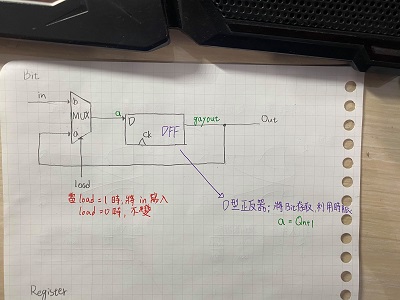 Bit
in
b
MUX
a
a
D
DFF
CK
gayout
Out
load
當load=1時,將in寫入
load=0時,不變
D型正反器:將Bit存取,利用時脈
a = Qn+1
Register